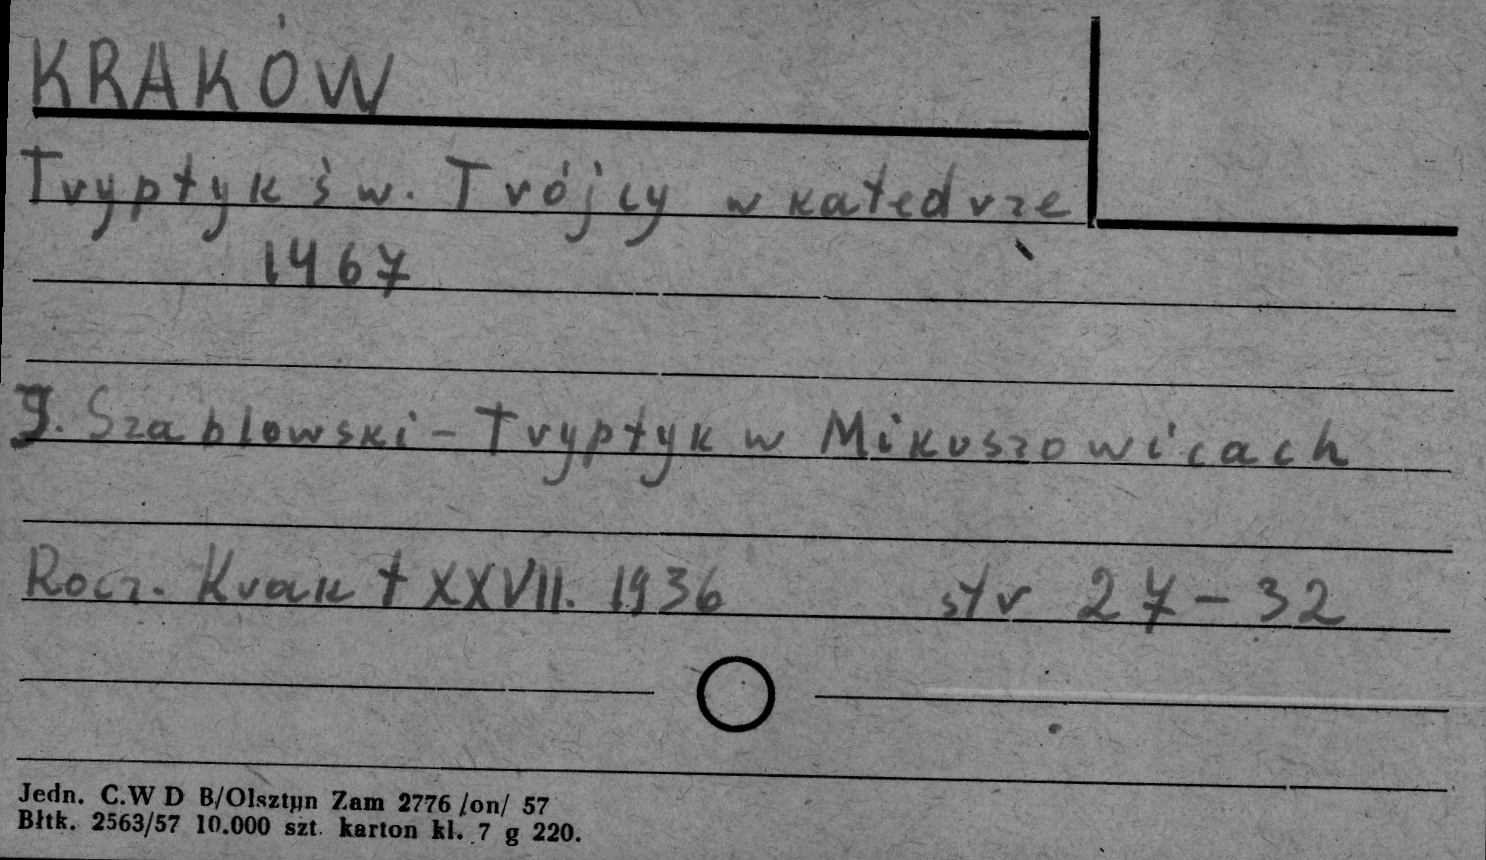 KRAKÓW
Tryptyk św. Trójcy w katedrze
1467
J. Szablowski - Tryptyk w Mikuszowicach
Rocz. Krak t XXVII. 1936 str 27-32
Jedn. C.W D B/Olsztyn Zam 2776 /on/ 57
Błtk. 2563/57 10.000 szt. karton kl. 7 g 220.